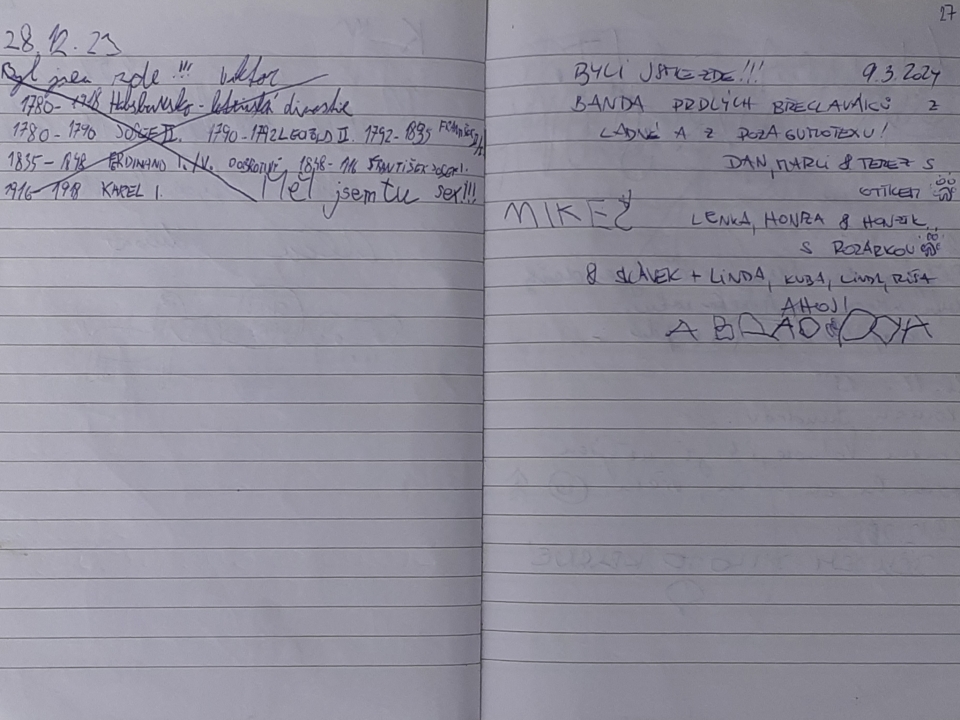 28.12.23
Byl jsem zde!!! Viktor
1780-1918 Habsbursko-lotrinská dinastie
1780-1790 JOSEF II. 1790-1792 LEOPOLD II. 1792-1835
1835-1848 FERDINAND I./V. DOBROTIVÝ 1848-1916 FRANTIŠEK JOSEF I.
1916-1918 KAREL I. Měl jsem tu sex!!!
27
BYLI JSME ZDE!!! 9.3.2024
BANDA PRDLÝCH BŘECLAVÁKŮ Z
LADNÉ A Z POZA GUMOTEXU!
DAN, MARLI & TEREZ S
OTÍKEM
MIKEŠ LENKA, HONZA & HONZÍK
S ROZÁRKOU
& SLÁVEK + LINDA, KUBA, LINDA, RÍŠA
AHOJ!